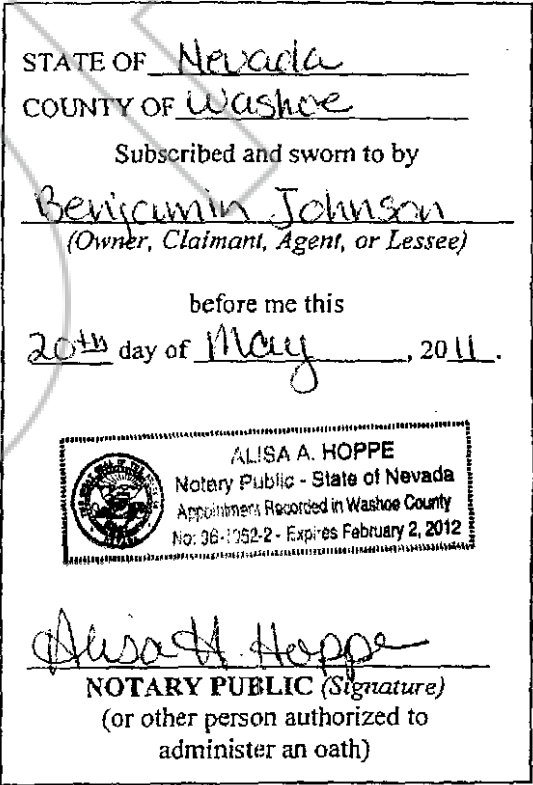 STATE OF Nevada
COUNTY OF Washoe
Subscribed and sworn to by
Benjamin Johnson
(Owner, Claimant, Agent, or Lessee)
before me this
20th day of May, 2011.
ALISA A. HOPPE
Notary Public - State of Nevada
Appointment Recorded in Washoe County
No: 96-1052-2 - Expires February 2, 2012
Alisa A. Hoppe
NOTARY PUBLIC (Signature)
(or other person authorized to
administer an oath)